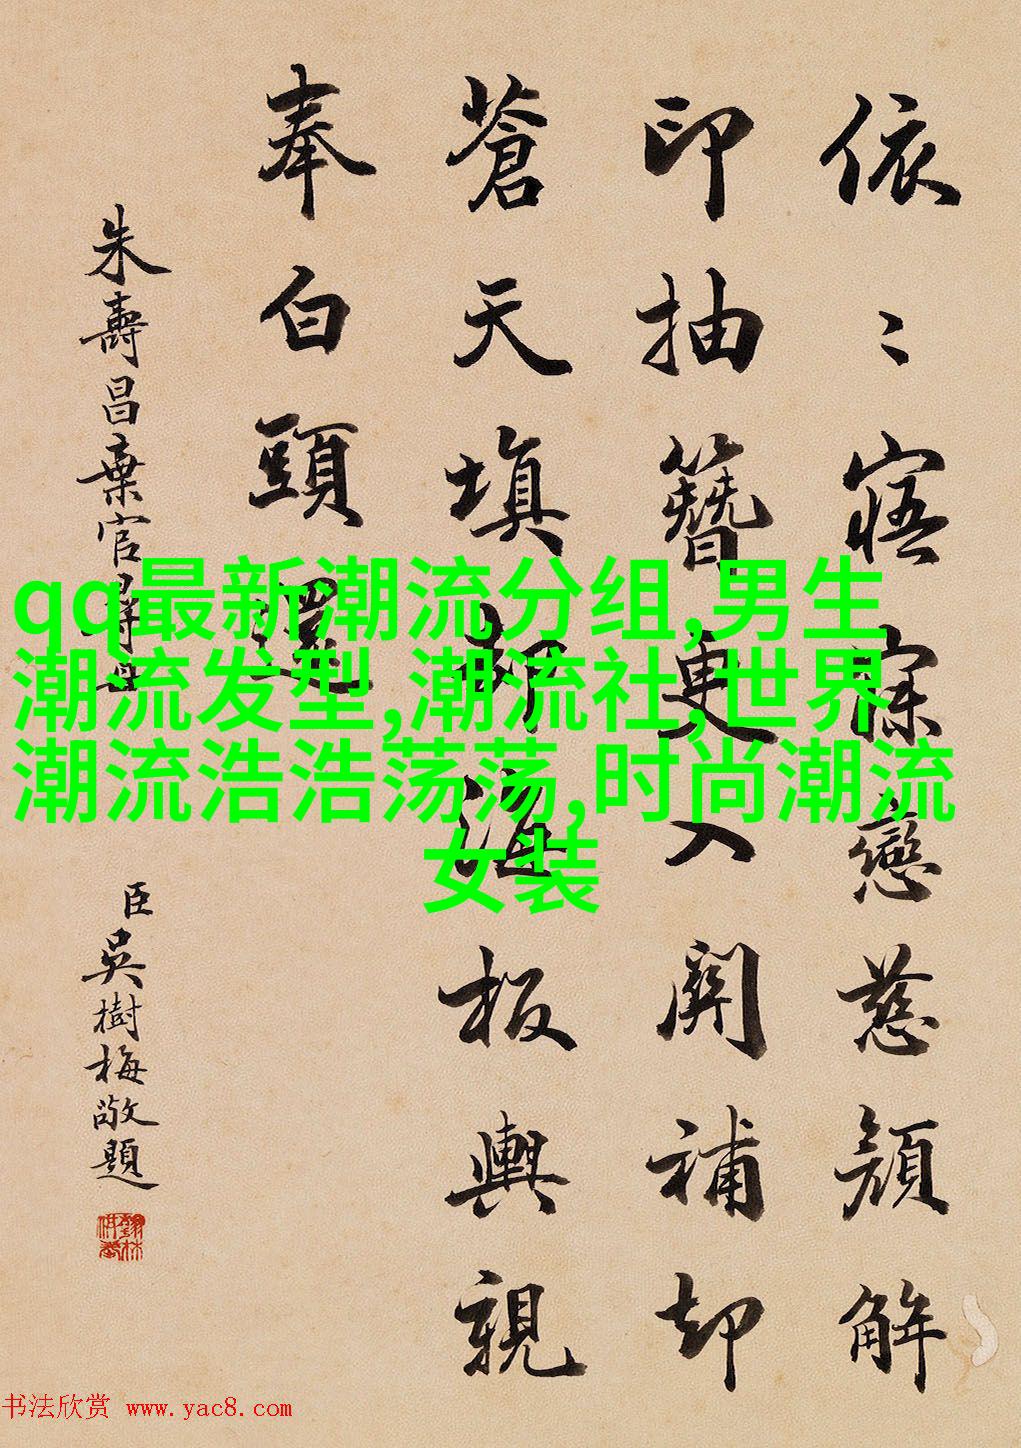 依〻寤寐戀慈顏解
印抽簪更入關補却
蒼天填却海板輿親
奉白頭還
朱壽昌棄官尋母
臣吳樹梅敬題
qq最新潮流分组,男生
潮流发型,潮流社,世界
潮流浩浩荡荡,时尚潮流
女装
书法欣赏 www.yac8.com